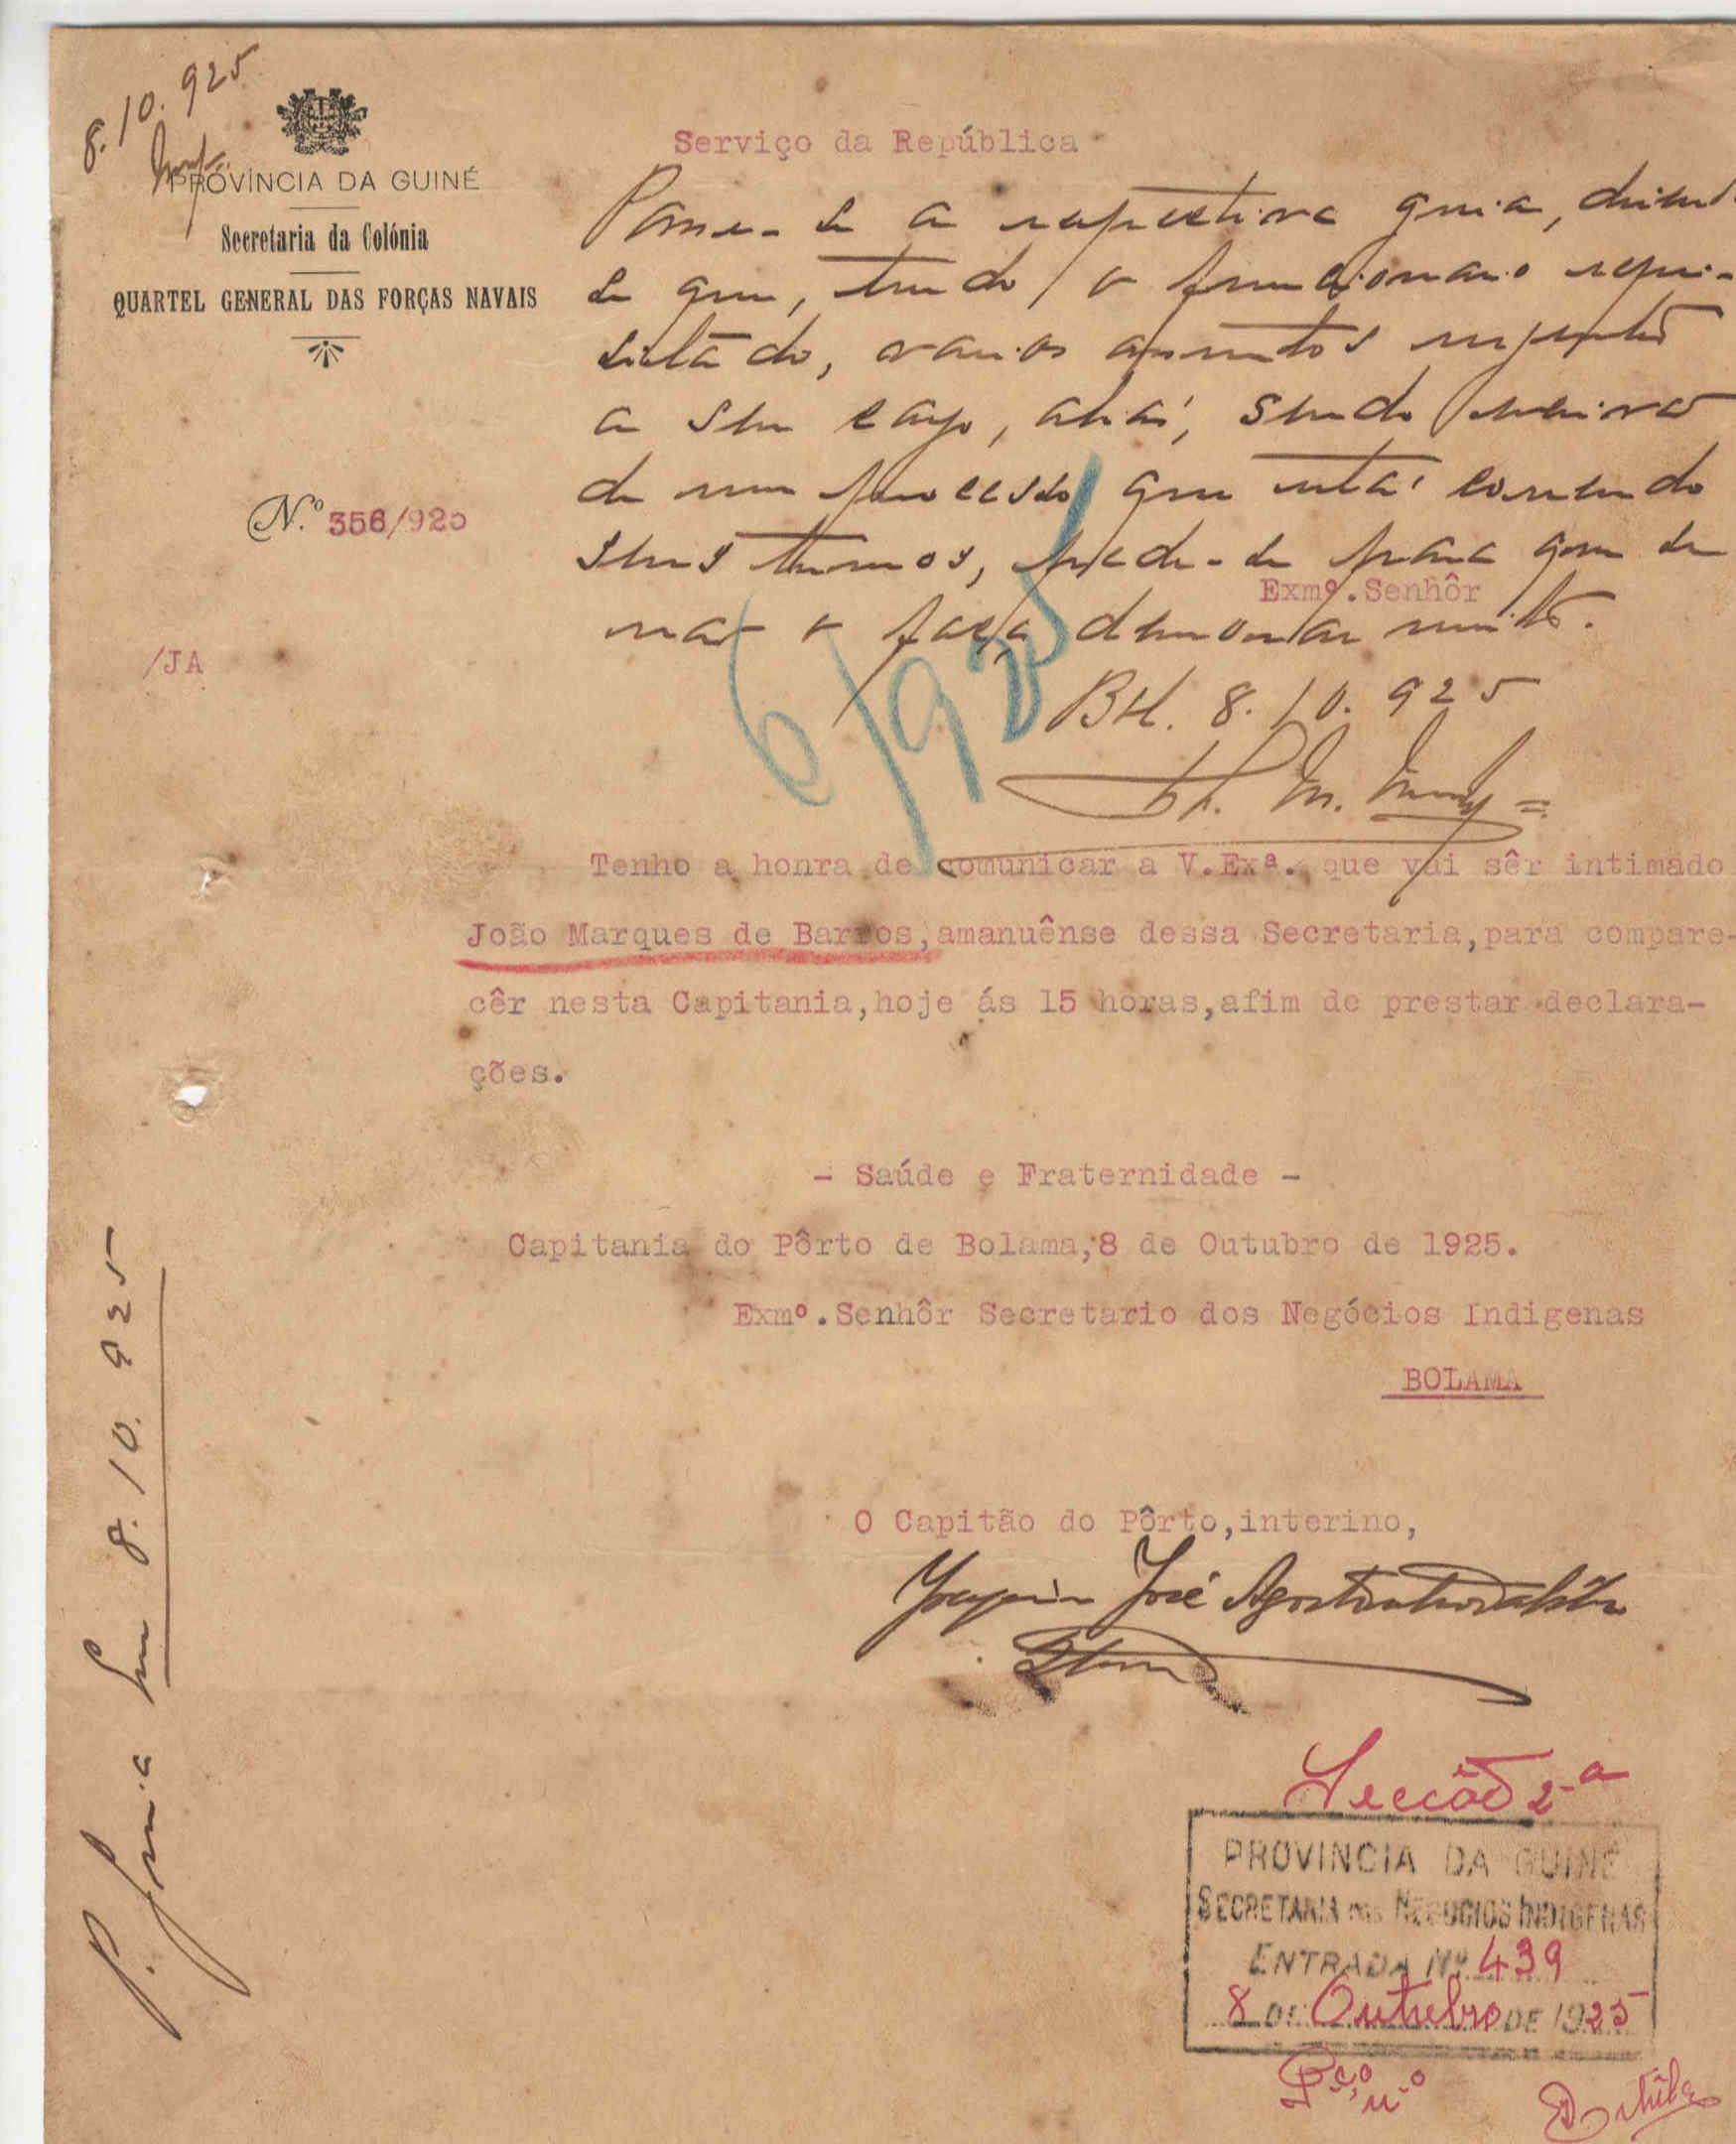 8.10.925
PROVÍNCIA DA GUINÉ
Secretaria da Colónia
QUARTEL GENERAL DAS FORÇAS NAVAIS
N.º 356/925
/JA
Serviço da República
Passe-se a respectiva guia, dizendo-
se que, tendo o funcionario requi-
sitado, varios assuntos
a seu cargo, aliás, sendo
de um processo que está correndo
seus termos, pede-se para que se
não o faça demorar muito.
Exmº.Senhôr
Bª. 8.10.925
6/925
Tenho a honra de comunicar a V.Exª. que vai sêr intimado
João Marques de Barros,amanuênse dessa Secretaria,para compare-
cêr nesta Capitania,hoje ás 15 horas,afim de prestar declara-
ções.
- Saúde e Fraternidade -
Capitania do Pôrto de Bolama,8 de Outubro de 1925.
Exmº.Senhôr Secretario dos Negócios Indigenas
BOLAMA
O Capitão do Pôrto,interino,
Joaquim José
P. guia em 8.10.925
Secção 2ª
PROVINCIA DA GUINÉ
SECRETARIA DOS NEGOCIOS INDIGENAS
ENTRADA Nº 439
8 DE Outubro DE 1925
Pº. nº